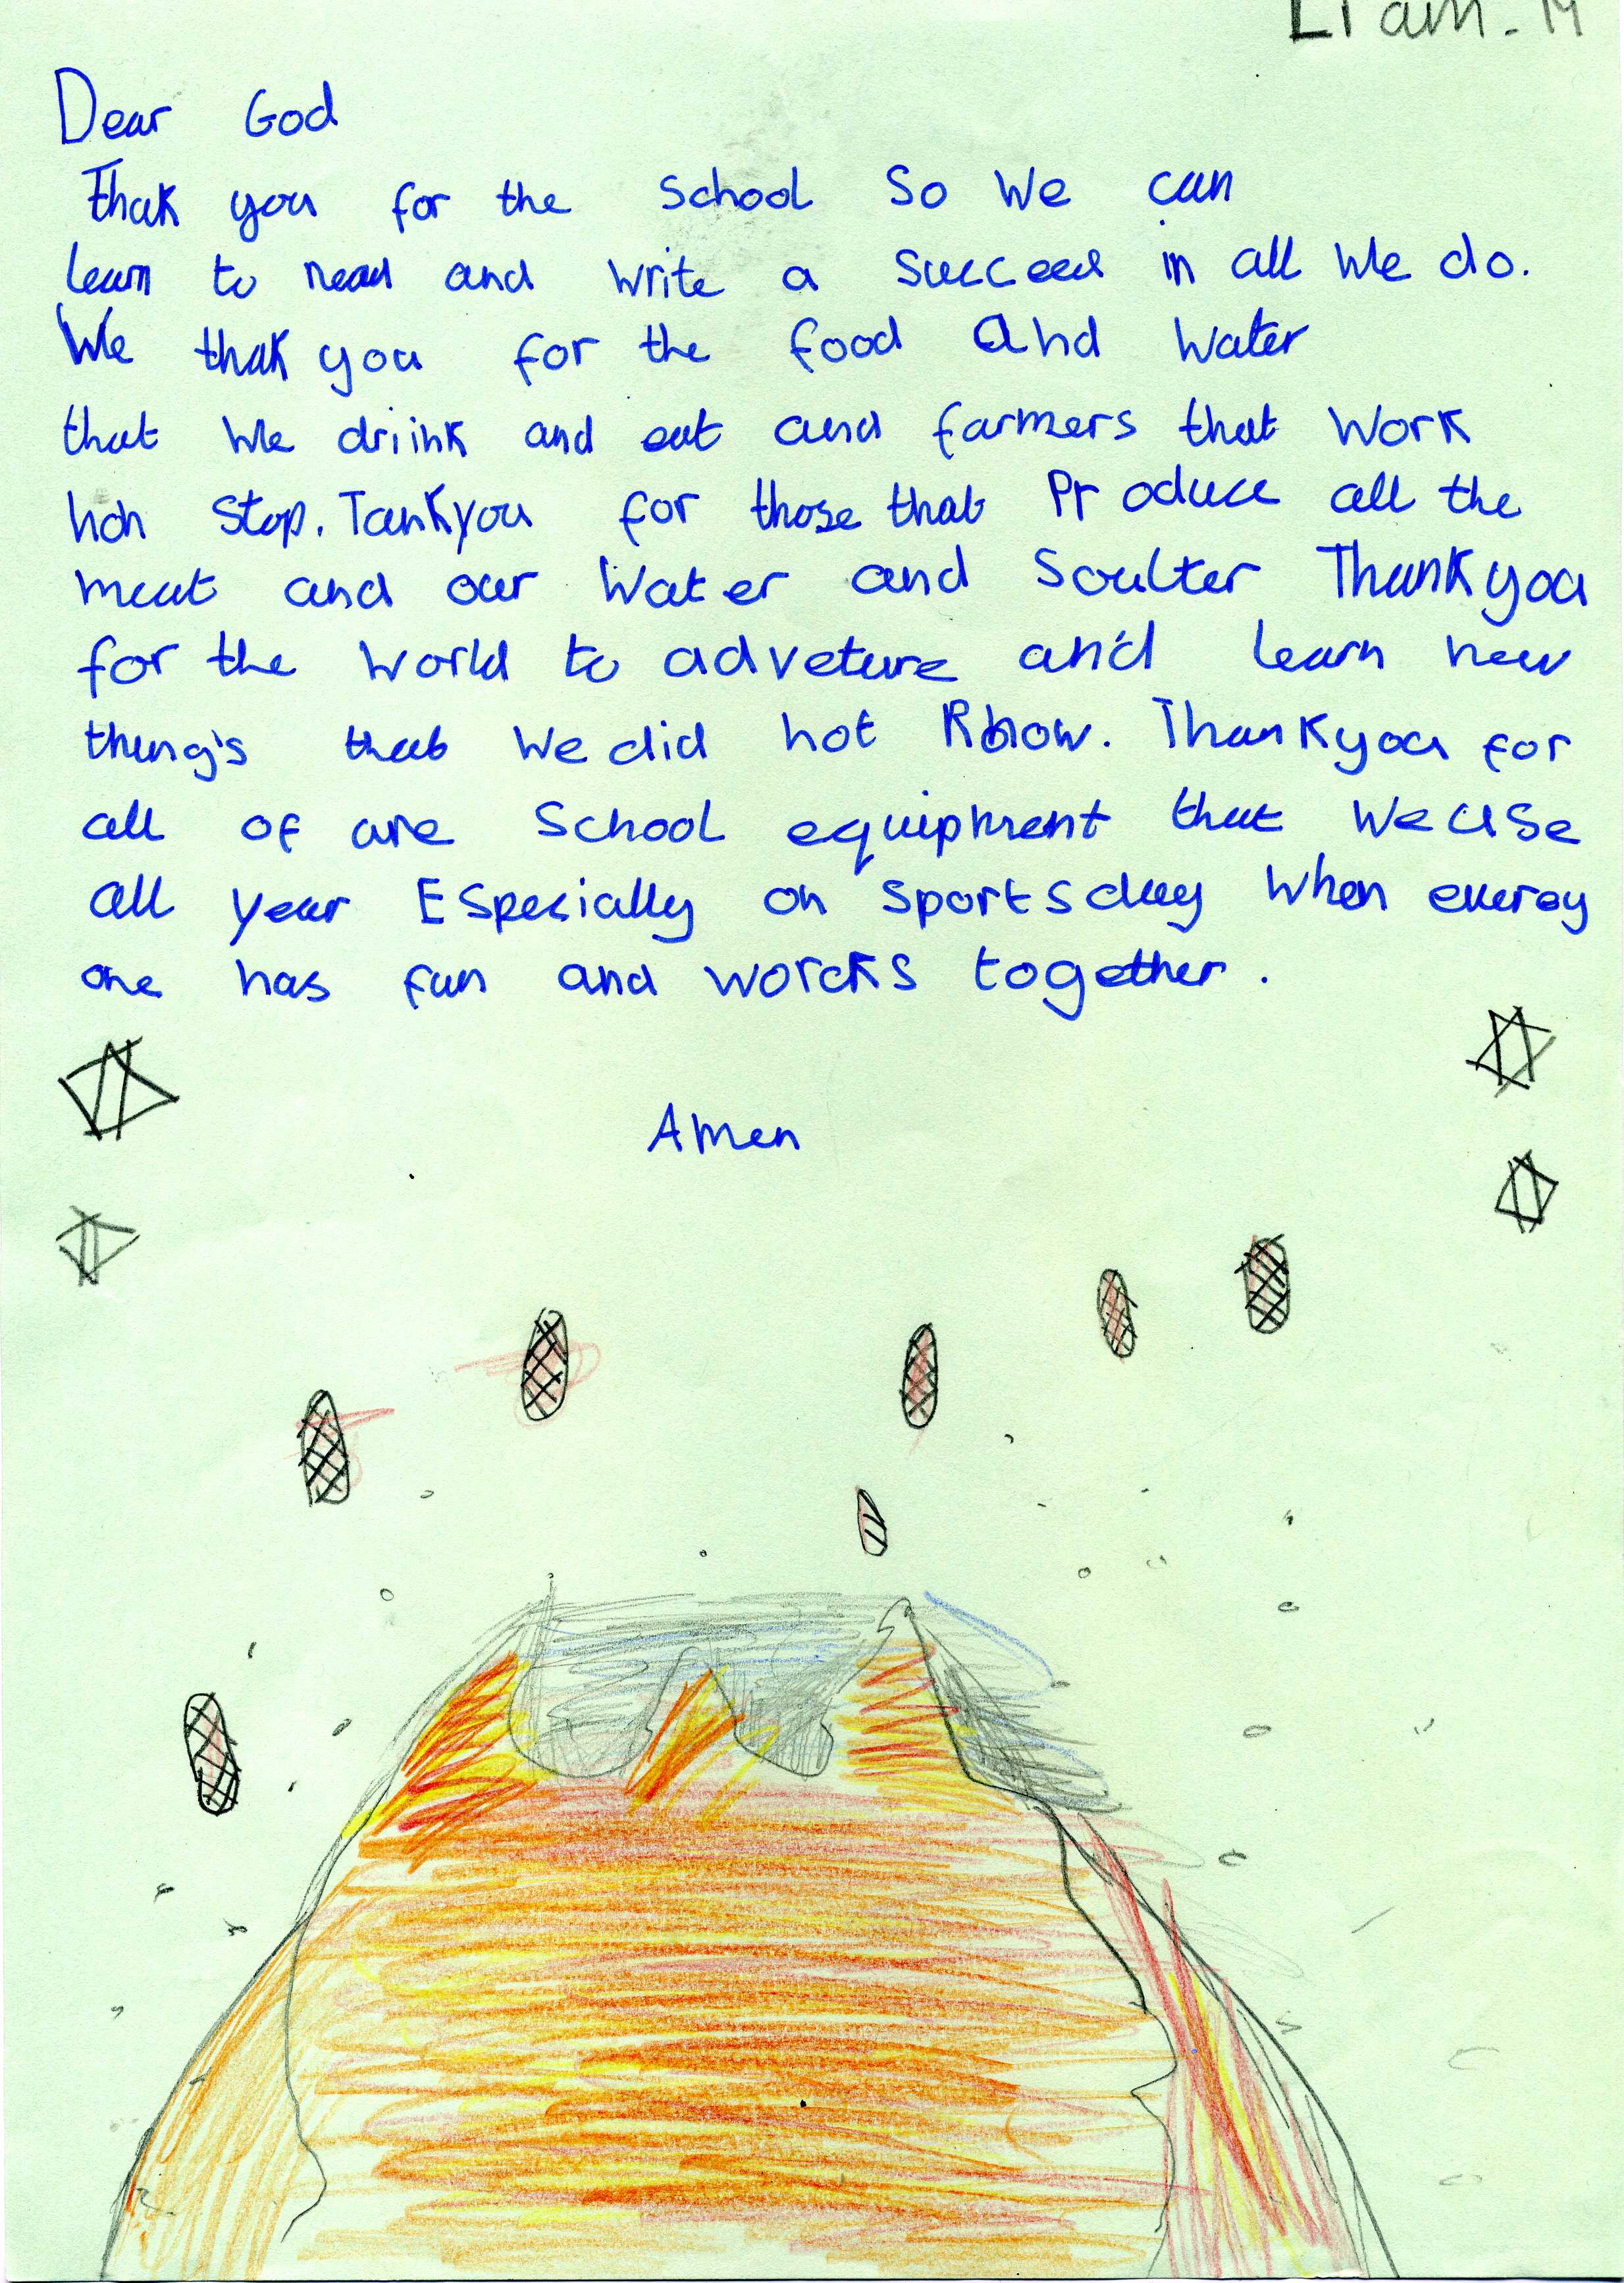 Liam. M
Dear God
Thak you for the School So We can
learn to read and write a Succeed in all We do.
We thak you for the food and Water
that We driink and eat and farmers that Work
non stop. Tankyou for those that Produce all the
meat and our Water and Soulter Thankyou
for the World to adveture and learn new
thing's that We did not Know. Thankyou for
all of are School equipment that We use
all year Especially on Sportsday When everoy
one has fun and worcks together.
Amen